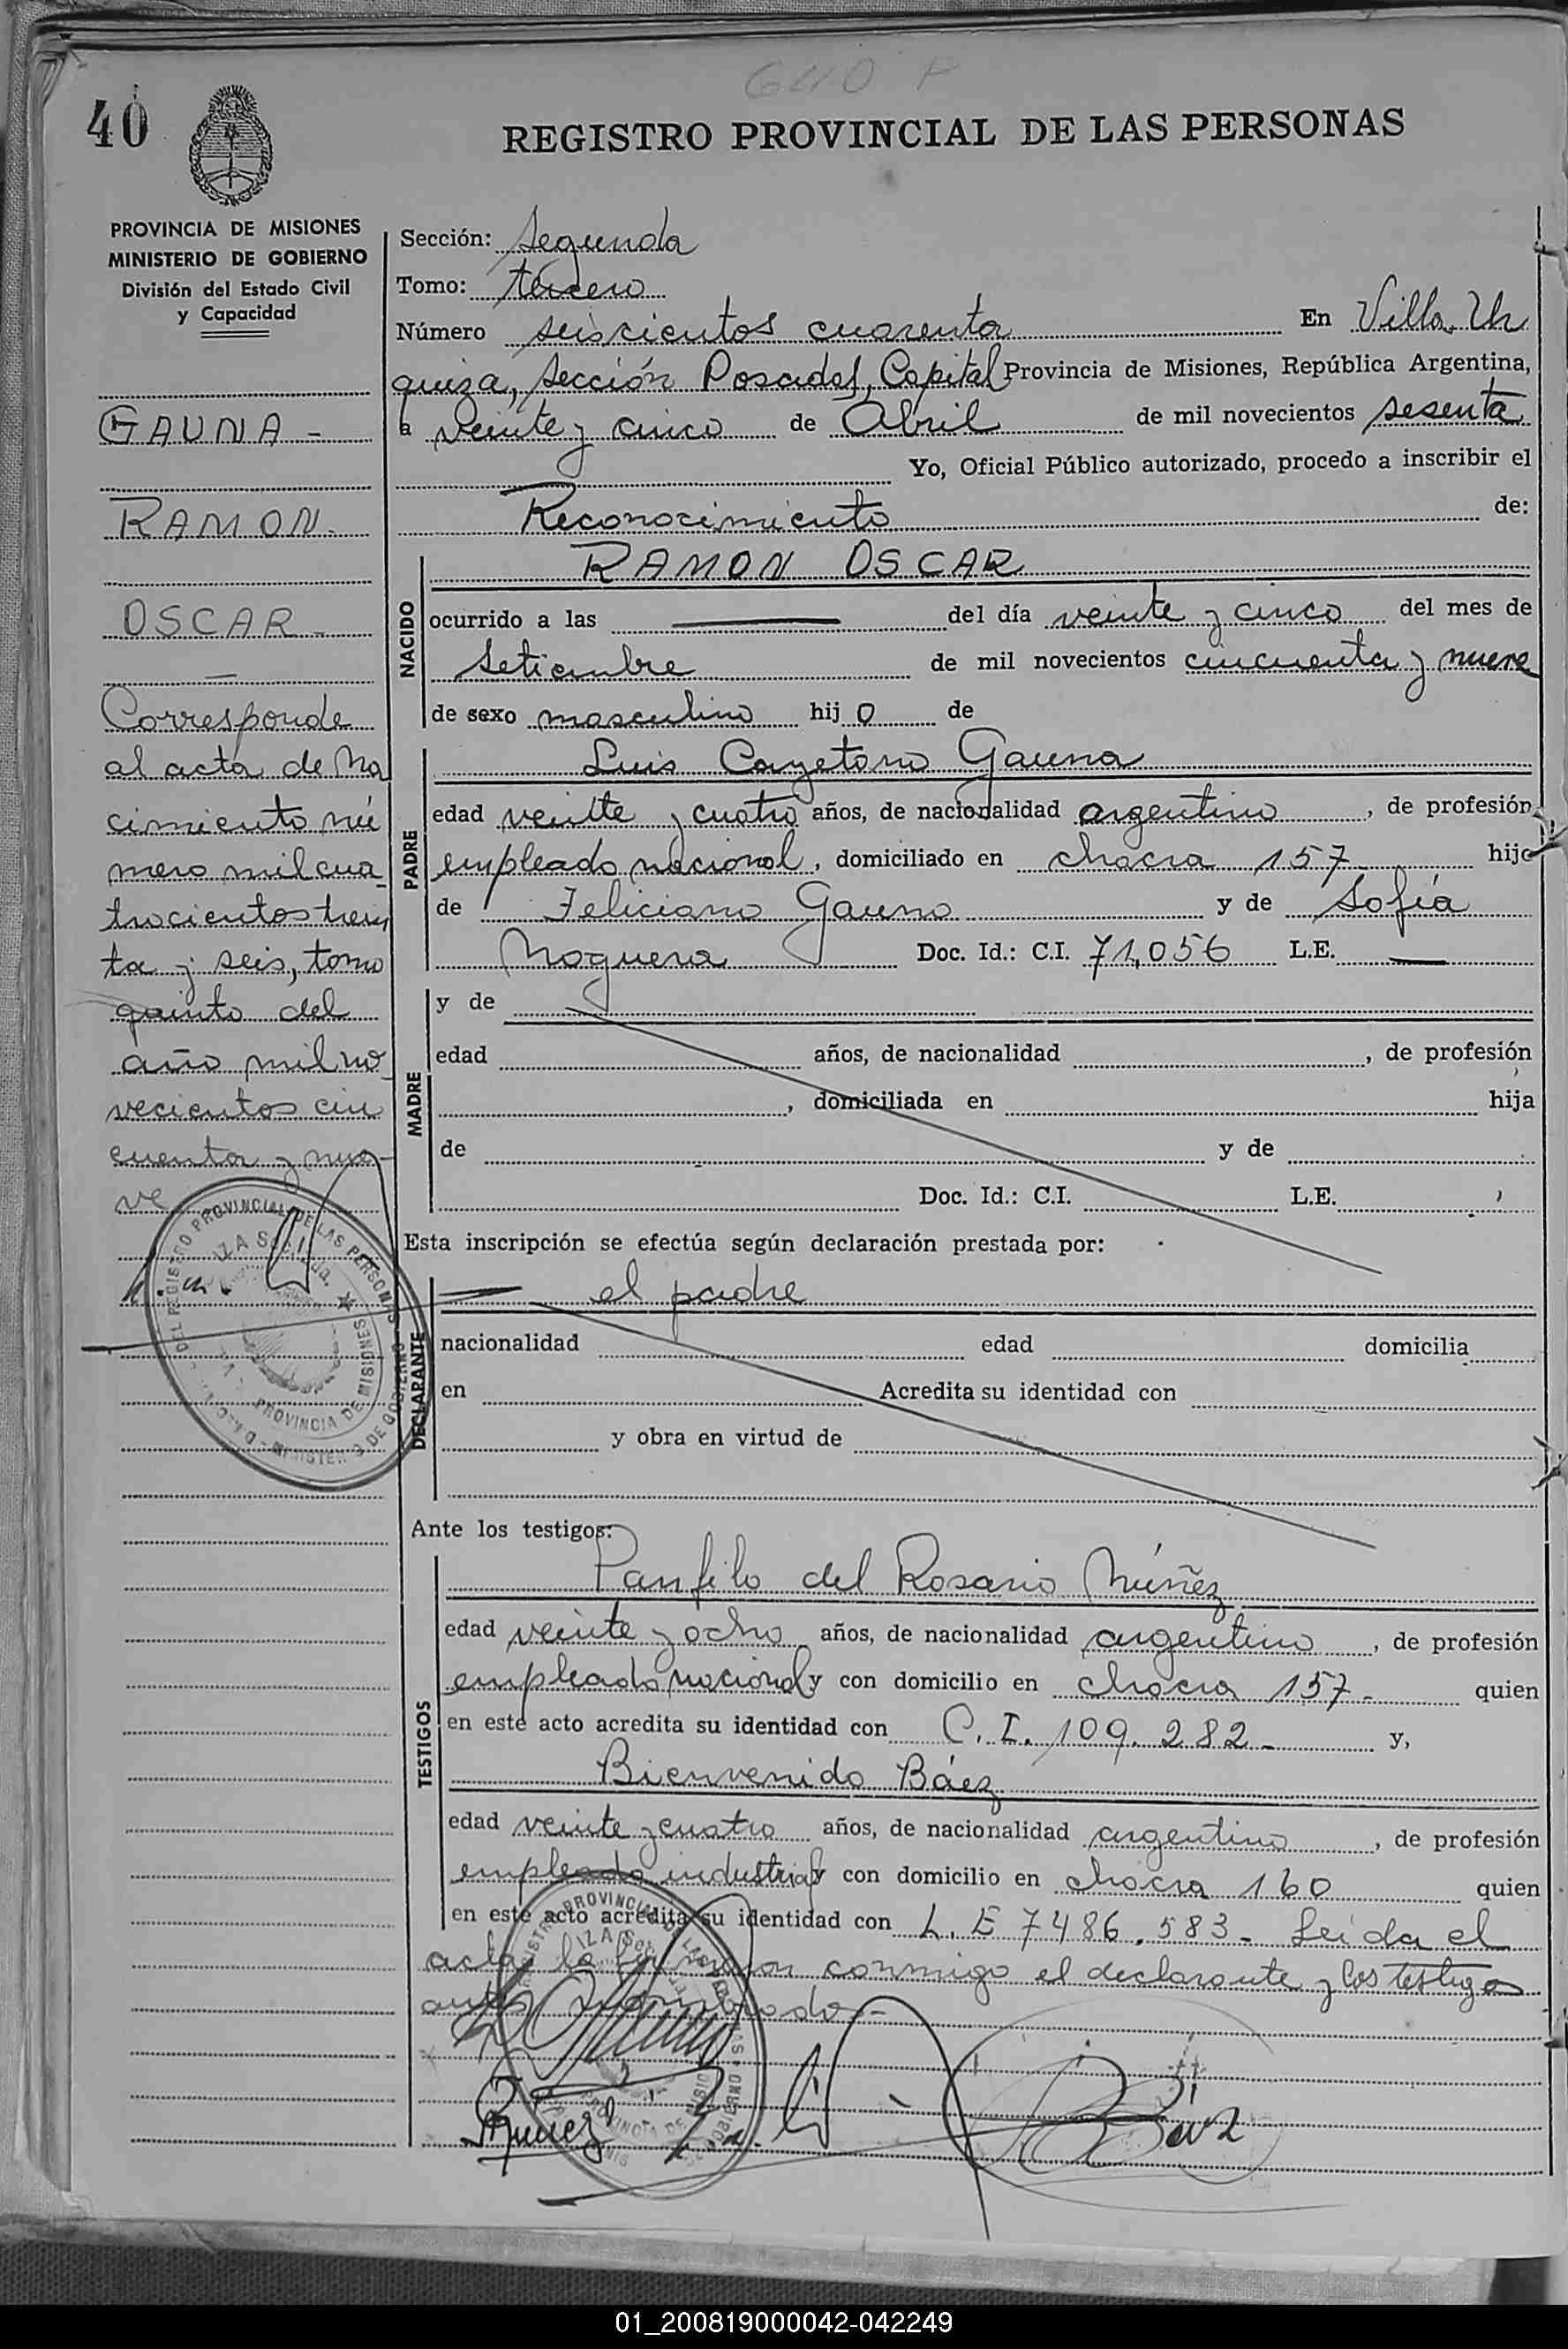 640 P
40
REGISTRO PROVINCIAL DE LAS PERSONAS
PROVINCIA DE MISIONES
MINISTERIO DE GOBIERNO
División del Estado Civil
y Capacidad
GAUNA -
RAMON -
OSCAR -
Corresponde
al acta de na
cimiento nú
mero mil cua
trocientos trein
ta y seis, tomo
quinto del
año mil no
vecientos cin
cuenta y nue-
ve
Sección: Segunda
Tomo: tercero
Número seiscientos cuarenta En Villa Ur
quiza, sección Posadas, Capital Provincia de Misiones, República Argentina,
a veinte y cinco de Abril de mil novecientos sesenta
Yo, Oficial Público autorizado, procedo a inscribir el
Reconocimiento de:
NACIDO
RAMON OSCAR
ocurrido a las del día veinte y cinco del mes de
Setiembre de mil novecientos cincuenta y nueve
de sexo masculino hij o de
PADRE
Luis Cayetano Gauna
edad veinte y cuatro años, de nacionalidad argentino, de profesión
empleado nacional, domiciliado en chacra 157 hijo
de Feliciano Gauna y de Sofía
Noguera Doc. Id.: C.I. 71,056 L.E. —
MADRE
y de
edad años, de nacionalidad , de profesión
, domiciliada en hija
de y de
Doc. Id.: C.I. L.E.
Esta inscripción se efectúa según declaración prestada por:
DECLARANTE
el padre
nacionalidad edad domicilia
en Acredita su identidad con
y obra en virtud de
Ante los testigos:
TESTIGOS
Panfilo del Rosario Núñez
edad veinte y ocho años, de nacionalidad argentino, de profesión
empleado nacional y con domicilio en chacra 157 - quien
en este acto acredita su identidad con C. I. 109.282 - y,
Bienvenido Báez
edad veinte y cuatro años, de nacionalidad argentino, de profesión
empleado industrial y con domicilio en chacra 160 quien
en este acto acredita su identidad con L. E 7486.583 - Leida el
acta, la conmigo el declarante y los testigos
antes
PROVINCIA DE MISIONES
01_200819000042-042249